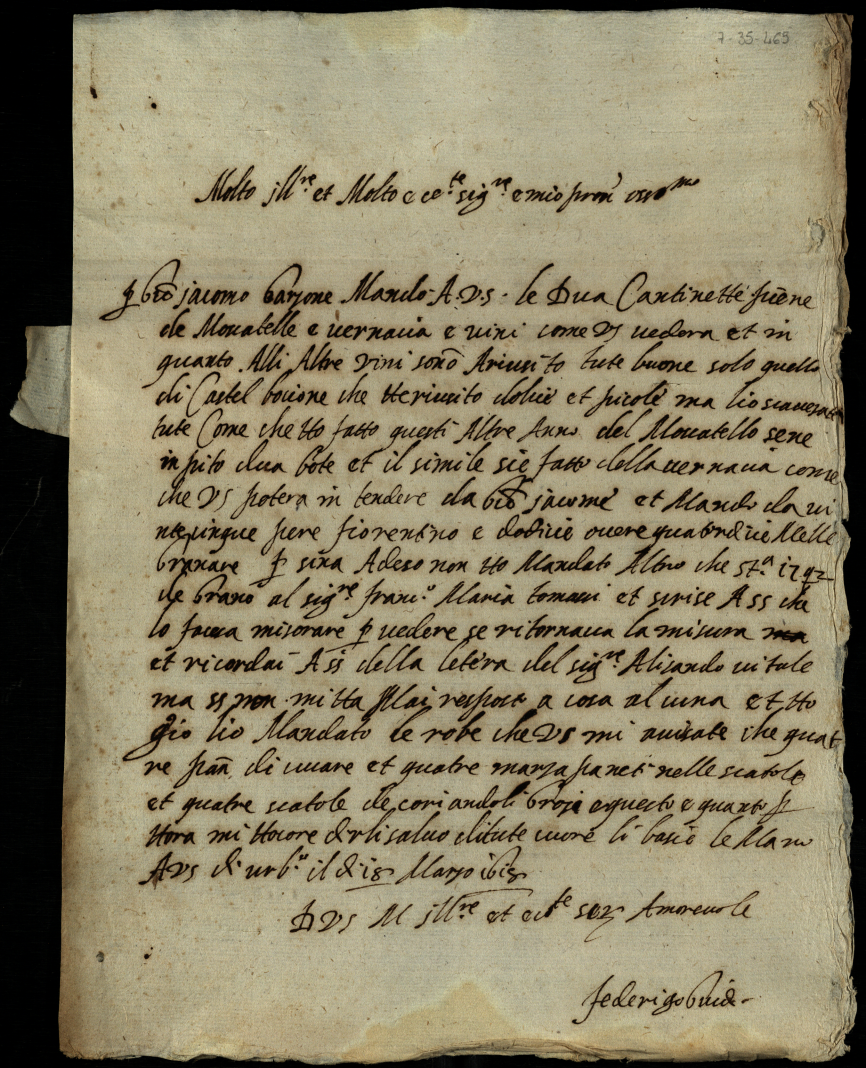 7-35-469
Molto Jll.re et Molto e ce.te sig.re e mio
jacomo barzone Mando A VS le Dua Cantinette piene
de Moscatelle e vernacia e vini come VS vedera et in
quanto Alli Altre vini sono Ariusito tute buone solo quello
di Castel bocione che tte riusito dolcie et picole ma lio
tute Come che tto fatto questi Altre Anno del Moscatello sene
inpito dua bote et il simile sie fatto della vernacia come
che VS potera in tendere da jacome et Mando da vi
nte cinque pere fiorentino e dodicie overe quatordicie Melle
p sina Adeso non tto Mandato Altro che st.a
de grano al sig.re franc.o Maria tomasi et scrise A SS che
lo facia misorare p vedere se ritornava la misura
et ricordai A SS della letera del sig.re Alisando vitale
ma SS non mi tta Mai resposto a cosa alcuna et tto
gio lio Mandato le robe che VS mi avisate che quat
re pan di et quatre marzapaneti nelle scatole
et quatre scatole de coriandoli grosi e questo e quanto p
ttora mi ttocore dirli salvo di tute core li bascio le Mano
A VS di urb.o il di 18 Marzo 1618
D VS M Jll.re et ec.te Amorevole
federigo